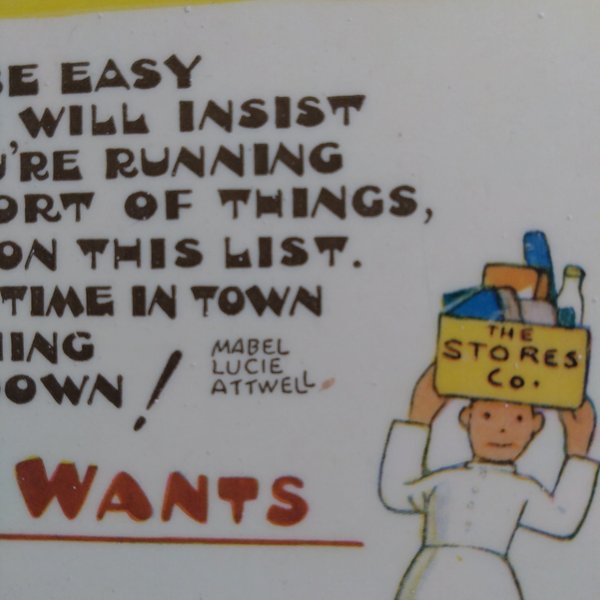 BE EASY
WILL INSIST
U'RE RUNNING
ORT OF THINGS,
ON THIS LIST.
TIME IN TOWN
HING
DOWN!
MABEL
LUCIE
ATTWELL
WANTS
THE
STORES
Co.